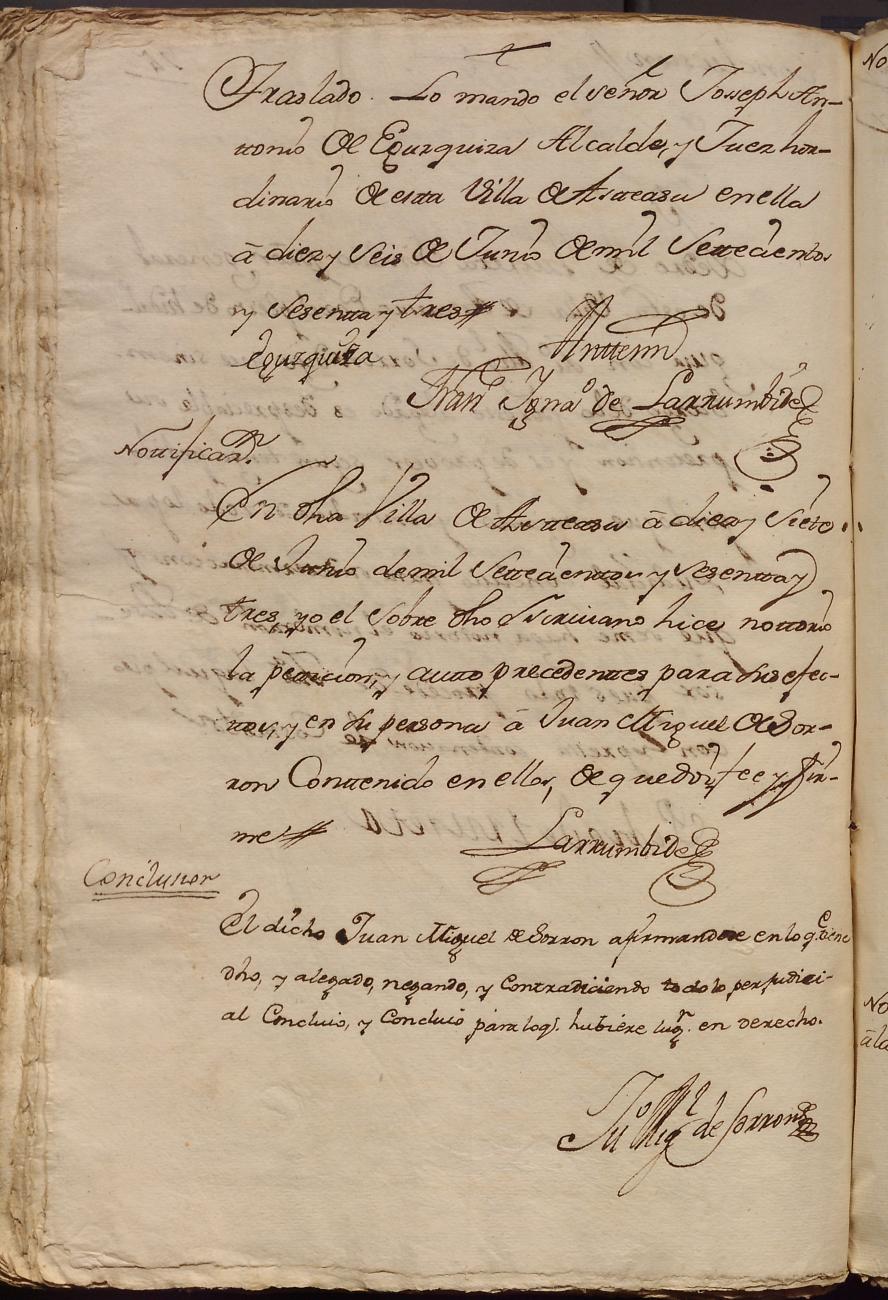 Traslado. Lo mando el señor Joseph An-
ttonio de Egurquiza Alcalde, y Juez hor-
dinario de esta Villa de Asteasu en ella
â diez y seis de Junio de mil settecientos
y sesenta y tres
Egurquiza
Antte mi
Franco Ignao de Larrumbide
Nottificazn.
En dha Villa de Asteasu â diez y siete
de Junio de mil settecienttos y sesentta y
tres, yo el sobre dho Escrivano hice nottorio
la peticion, y autto precedenttes para sus efec-
ttos, y en su persona â Juan Miguel de Sor-
ron Conttenido en ellos, de que doy fee y fir-
me
Larrumbide
Conclusion
El dicho Juan Miguel de Sorron afirmandose en lo qe. tiene
dho, y alegado, negando, y Contradiciendo todo lo perjudici-
al Concluio, y Concluiô para loq. hubiere lugr. en derecho.
Jun Migl de Sorron
No
No
â la